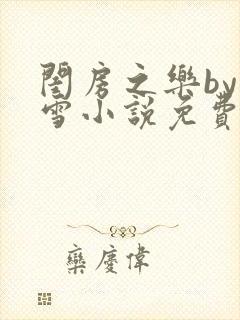 閨房之樂by
雪小說免費
欒慶偉